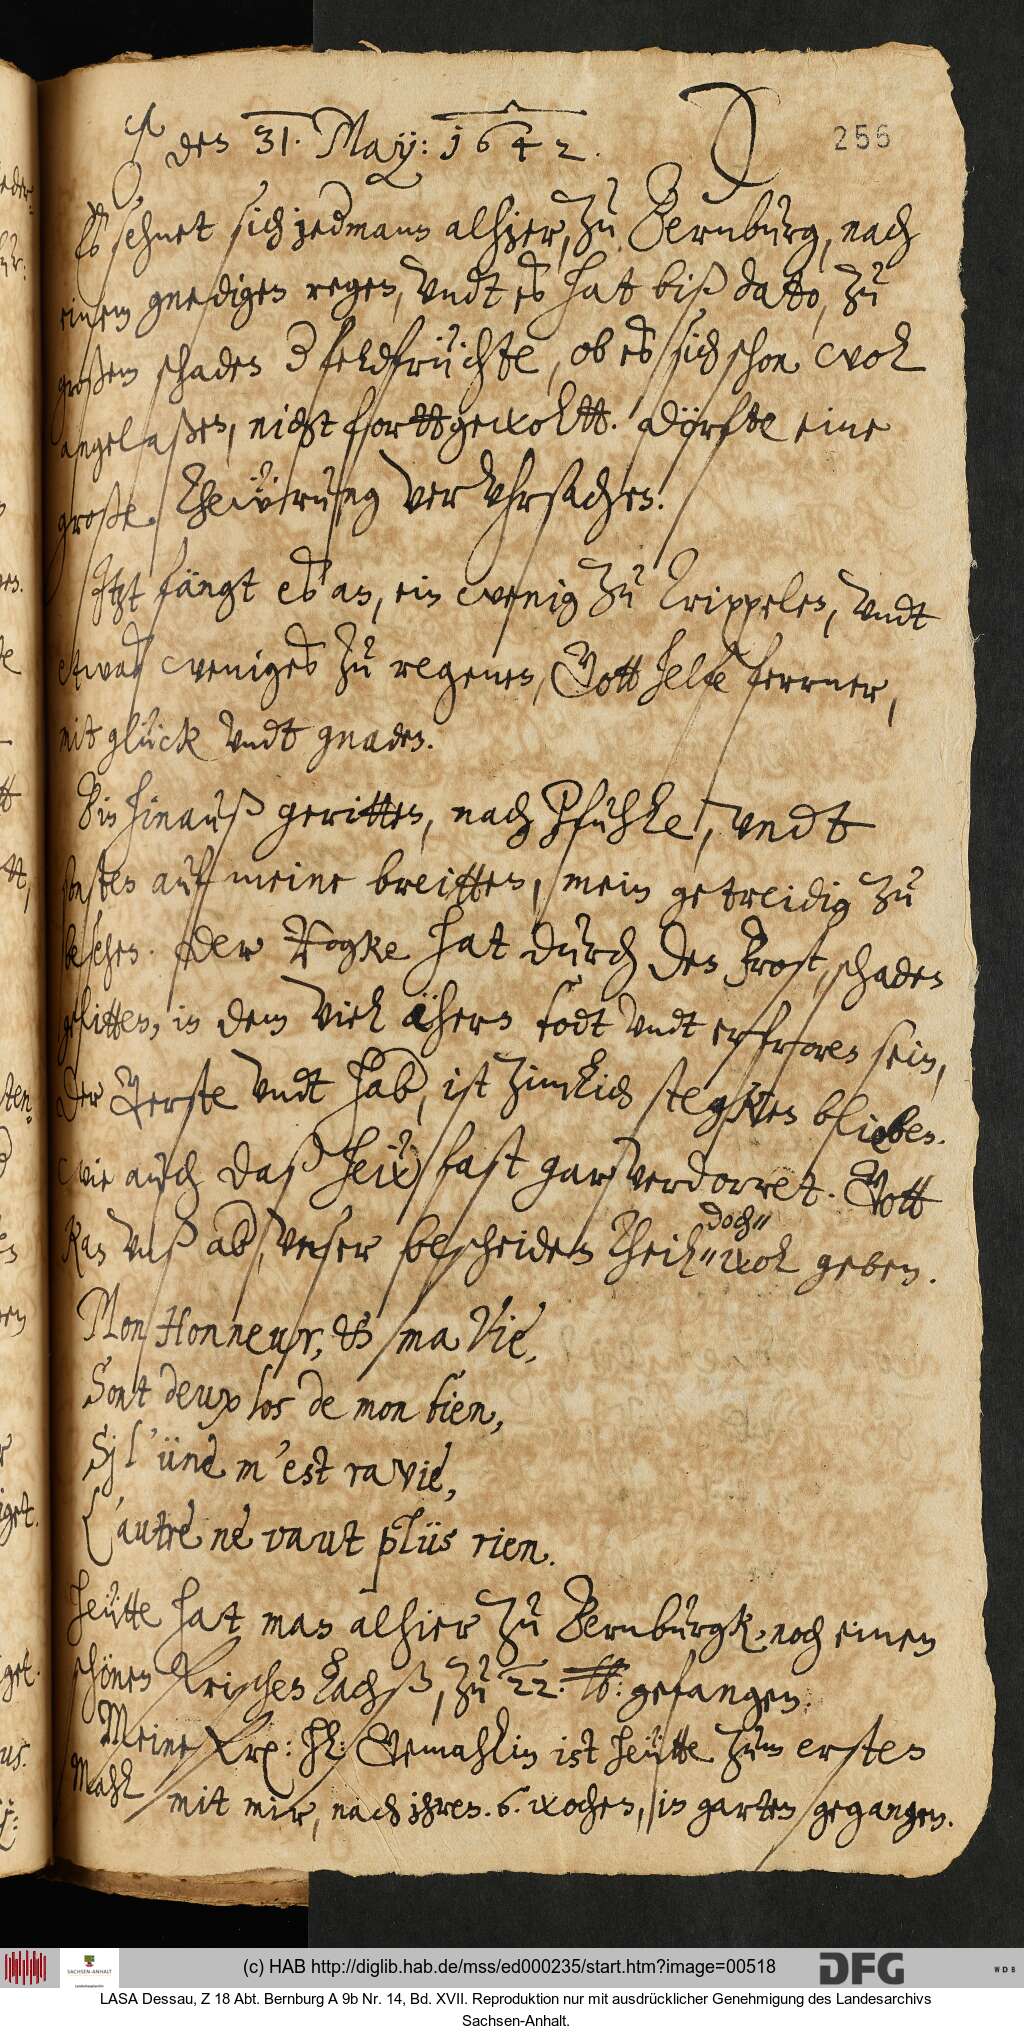 ♂ den 31. May: 1642. 256
Es sehnet sich jedmann alhier, zu Bernburg, nach
einem gnedigen regen, undt es hat biß dato, zu
großem schaden der feldfrüchte, ob es sich schon wol
angelaßen, nicht fortt gewoltt. Dörfte eine
große Theürung veruhrsachen.
Itzt fängt es an, ein wenig zu trippelen, undt
etwas weniges zu regenen, Gott helfe ferrner,
mit glück undt gnaden.
Bin hinauß geritten, nach Pfuhle, undt
sonsten auf meine breitten, mein getreidig zu
besehen. Der Rogke hat durch den Frost, schaden
gelitten, in dem viel ähern todt undt erfroren sein,
Der Gerste undt hab, ist zimlich stegken blieben.
wie auch daß heüw fast gar verdorret. Gott
kan unß ab, unser bescheiden Theil "wol geben.
doch"
Mon Honneur, & ma Vie,
Sont deux los de mon bien,
Sj l'üne m'est ravie,
L'autre ne vaut plüs rien.
Heütte hat man alhier zu Bernburgk, noch einen
schönen frischen Lachß, zu 22. ℔. gefangen.
Meine frx: hl: Gemahlin ist heütte zum ersten
Mahl mit mir, nach ihren 6. wochen, in garten gegangen.
(c) HAB http://diglib.hab.de/mss/ed000235/start.htm?image=00518
SACHSEN-ANHALT
DFG
WDB
LASA Dessau, Z 18 Abt. Bernburg A 9b Nr. 14, Bd. XVII. Reproduktion nur mit ausdrücklicher Genehmigung des Landesarchivs
Sachsen-Anhalt.